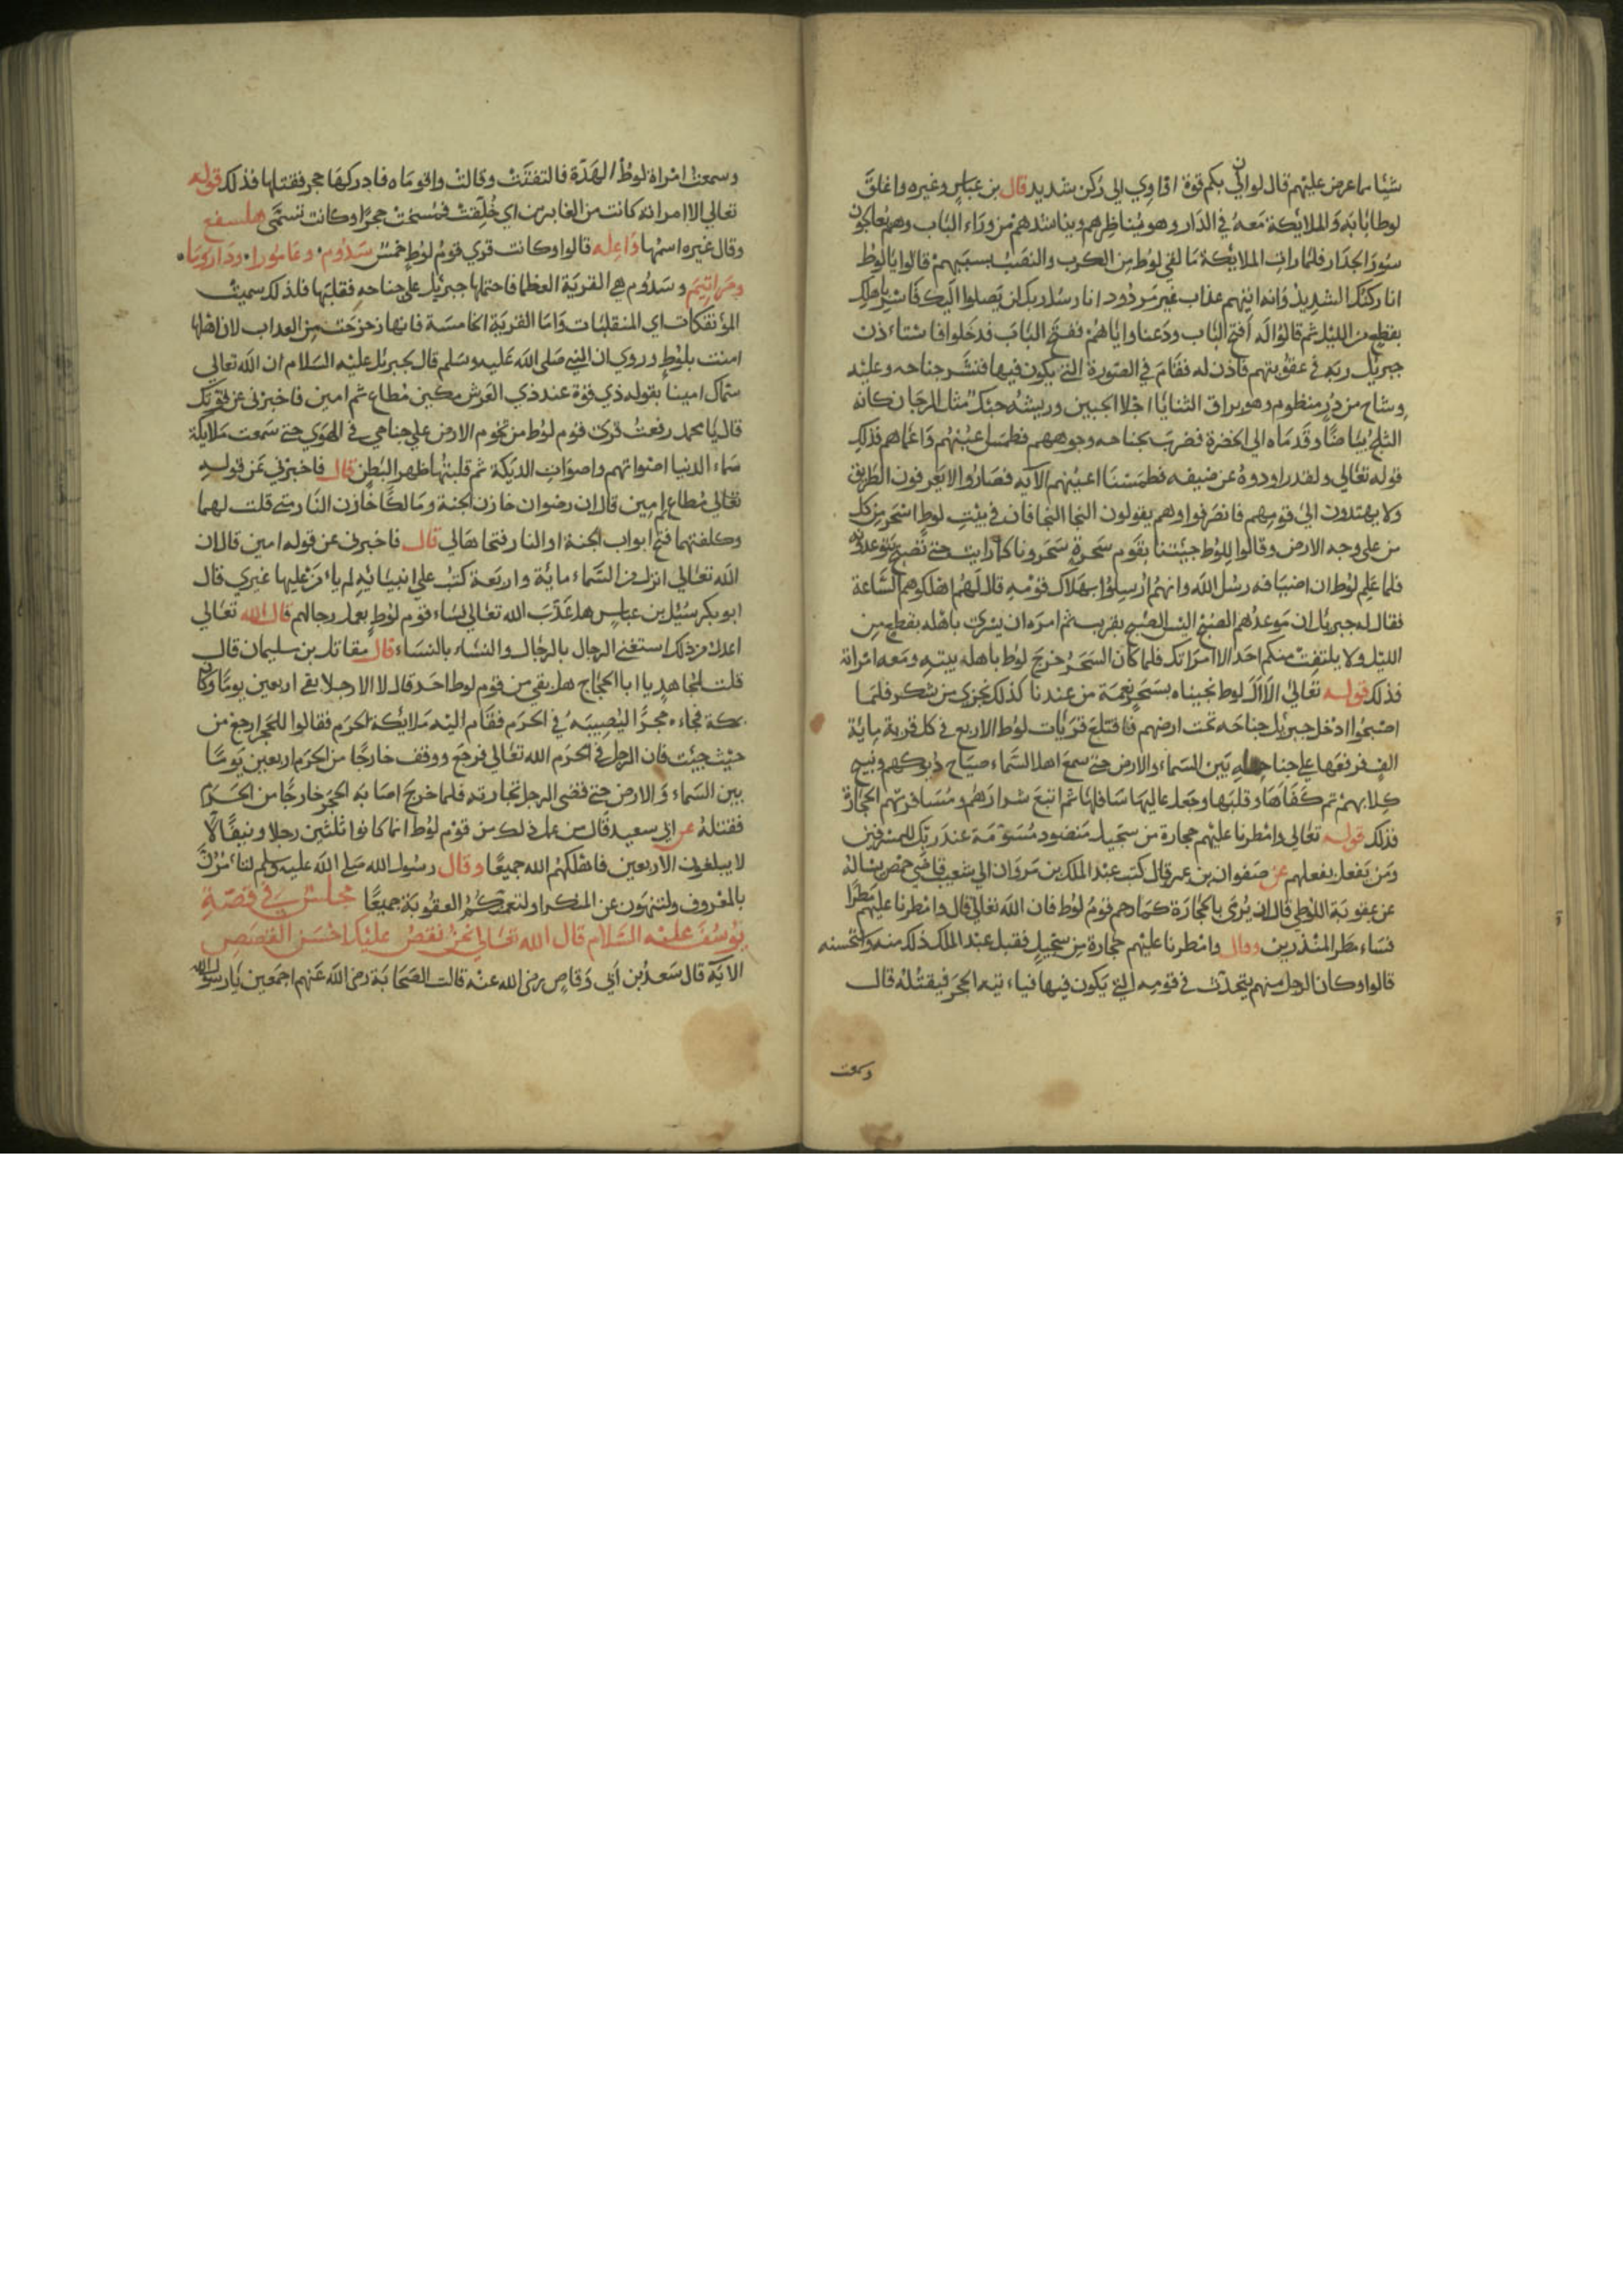 شيئا مما عرض عليهم قال لو اني بكم قوة او اوي الى ركن شديد قال بن عباس وغيره واغلق
لوط بابه والملايكة معه في الدار وهو يناظرهم ويناشدهم من وراء الباب وهم يعالجون
سور الجدار فلما رات الملايكة ما لقي لوط من الكرب والنصب بسببهم قالوا يا لوط
ان ركنك الشديد وانه اتيهم عذاب غير مردود انا رسل ربك لن يصلوا اليك فاسر باهلك
بقطع من الليل ثم قالوا له افتح الباب ودعنا واياهم ففتح الباب فدخلوا فاستاذن
جبريل ربه في عقوبتهم فاذن له فقام في الصورة التي يكون فيها فنشر جناحه وعليه
وشاح من در منظوم وهو براق الثنايا اجلا الجبين وريشه حبك مثل المرجان كانه
الثلج بياضا وقدماه الى الخضرة فضرب بجناحه وجوههم فطمس اعينهم واعماهم فذلك
قوله تعالى ولقد راودوه عن ضيفه فطمسنا اعينهم الايه فصاروا لا يعرفون الطريق
ولا يهتدون الى قومهم فانصرفوا وهم يقولون النجا النجا فان في بيت لوط اسحر من كل
من على وجه الارض وقالوا للوط جيتنا بقوم سحرة سحرونا كما رايت حتى تصبح يتوعدونه
فلما علم لوط ان اضيافه رسل الله وانهم ارسلوا بهلاك قومه قال لهم اهلكوهم الساعة
فقال له جبريل ان موعدهم الصبح اليس الصبح بقريب ثم امره ان يسرى باهله بقطع من
الليل ولا يلتفت منكم احد الا امراتك فلما كان السحر خرج لوط باهله بيته ومعه امراته
فذلك قوله تعالى الا ال لوط نجيناه بسحر نعمة من عندنا كذلك نجزي من شكر فلما
اصبحوا ادخل جبريل جناحه تحت ارضهم فاقتلع قريات لوط الاربع في كل قرية ماية
الف فرفعها على جناحه بين السماء والارض حتى سمع اهل السماء صياح ديوكهم ونبيح
كلابهم ثم كفاها وقلبها وجعل عاليها سافلها ثم اتبع شرادهم ومسافريهم الحجارة
فذلك قوله تعالى وامطرنا عليهم حجارة من سجيل منضود مسومة عند ربك للمسرفين
ومن يفعل بفعلهم عن صفوان بن عمر قال كتب عبد الملك بن مروان الي شعيب قاضي حمص يساله
عن عقوبة اللوطي قال ان يرمى بالحجارة كما رجم قوم لوط فان الله تعالى قال وامطرنا عليهم مطرا
فساء مطر المنذرين وقال وامطرنا عليهم حجارة من سجيل فقبل عبد الملك ذلك منه واستحسنه
قالوا وكان الرجل منهم يتحدث في قومه التي يكون فيها فياتيه الحجر فيقتله قال
وسمعت
وسمعت امراة لوط الهدة فالتفتت وقالت واقوماه فادركها حجر فقتلها فذلك قوله
تعالى الا امراته كانت من الغابرين اي خلفت فمسخت حجرا وكانت تسمى هلسفع
وقال غيره اسمها واعله قالوا وكانت قري قوم لوط خمس سدوم وعامورا ودارويا
وصراتيم وسدوم هي القرية العظما فاحتملها جبريل على جناحه فقلبها فلذلك سميت
المؤتفكات اي المنقلبات واما القرية الخامسة فانها زحزحت من العذاب لان اهلها
امنت بلوط وروي ان النبي صلى الله عليه وسلم قال لجبريل عليه السلام ان الله تعالى
سماك امينا بقوله ذي قوة عند ذي العرش مكين مطاع ثم امين فاخبرني عن قوتك
قال يا محمد رفعت قرى قوم لوط من تخوم الارض على جناحي في الهوي حتى سمعت ملايكة
سماء الدنيا اصواتهم واصوات الديكة ثم قلبتها ظهر البطن قال فاخبرني عن قوله
تعالى مطاع امين قال ان رضوان خازن الجنة ومالكا خازن النار متى قلت لهما
وكلفتهما فتح ابواب الجنة او النار فتحاها لي قال فاخبرني عن قوله امين قال ان
الله تعالى انزل من السماء ماية واربعة كتب على انبيائه لم يأمن عليها غيري قال
ابو بكر سيل بن عباس هل عذب الله تعالى نساء قوم لوط بعمل رجالهم قال الله تعالى
اعدل من ذلك استغنى الرجال بالرجال والنساء بالنساء قال مقاتل بن سليمان قال
قلت لمجاهد يا ابا الحجاج هل بقي من قوم لوط احد قال لا الا رجلا بقى اربعين يوما وكان
بمكة فجاءه حجر اليصيبه في الحرم فقام اليه ملايكة الحرم فقالوا للحجر ارجع من
حيث جيت فان الرجل في الحرم الله تعالى فرجع ووقف خارجا من الحرم اربعين يوما
بين السماء والارض حتى قضى الرجل تجارته فلما خرج اصابه الحجر خارجا من الحرم
فقتله عن ابي سعيد قال من عمل ذلك من قوم لوط انما كانوا ثلثين رجلا ونيفا لا
لا يبلغون الاربعين فاهلكهم الله جميعا وقال رسول الله صلى الله عليه وسلم لتأمرن
بالمعروف ولتنهون عن المنكر او لتعمنكم العقوبة جميعا مجلس في قصة
يوسف عليه السلام قال الله تعالى نحن نقص عليك احسن القصص
الاية قال سعد بن أبي وقاص رضى الله عنه قالت الصحابة رضى الله عنهم اجمعين يا رسول الله